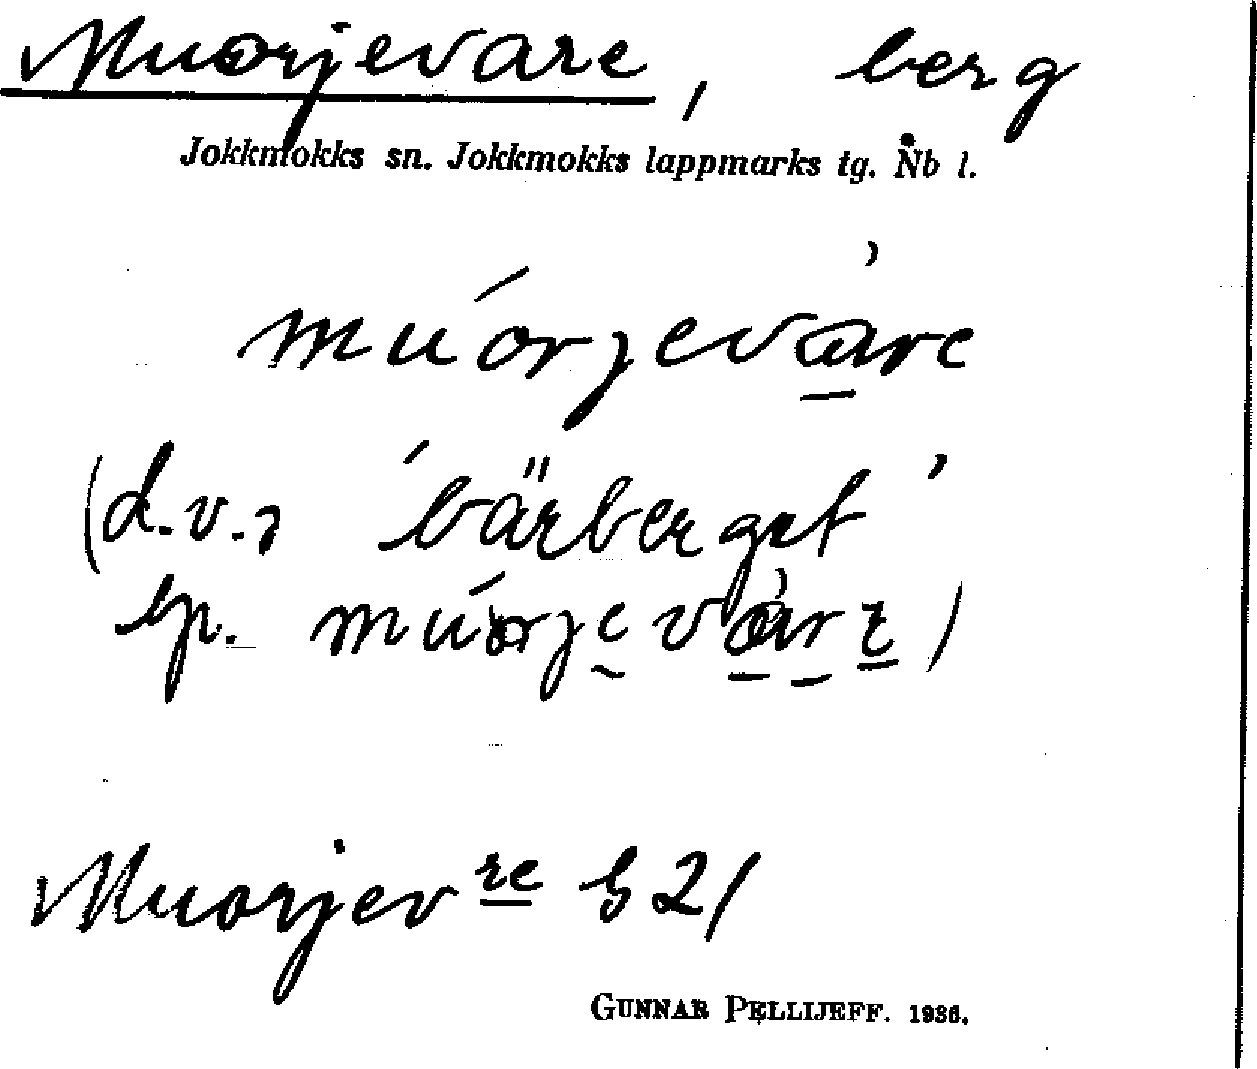 Muorjevare, berg
Jokkmokks sn. Jokkmokks lappmarks tg. Nb l.
múorjevàre
(d.v.s 'bärberget'
lp.
Muorjev re
GUNNAR PELLIJEFF. 1936.